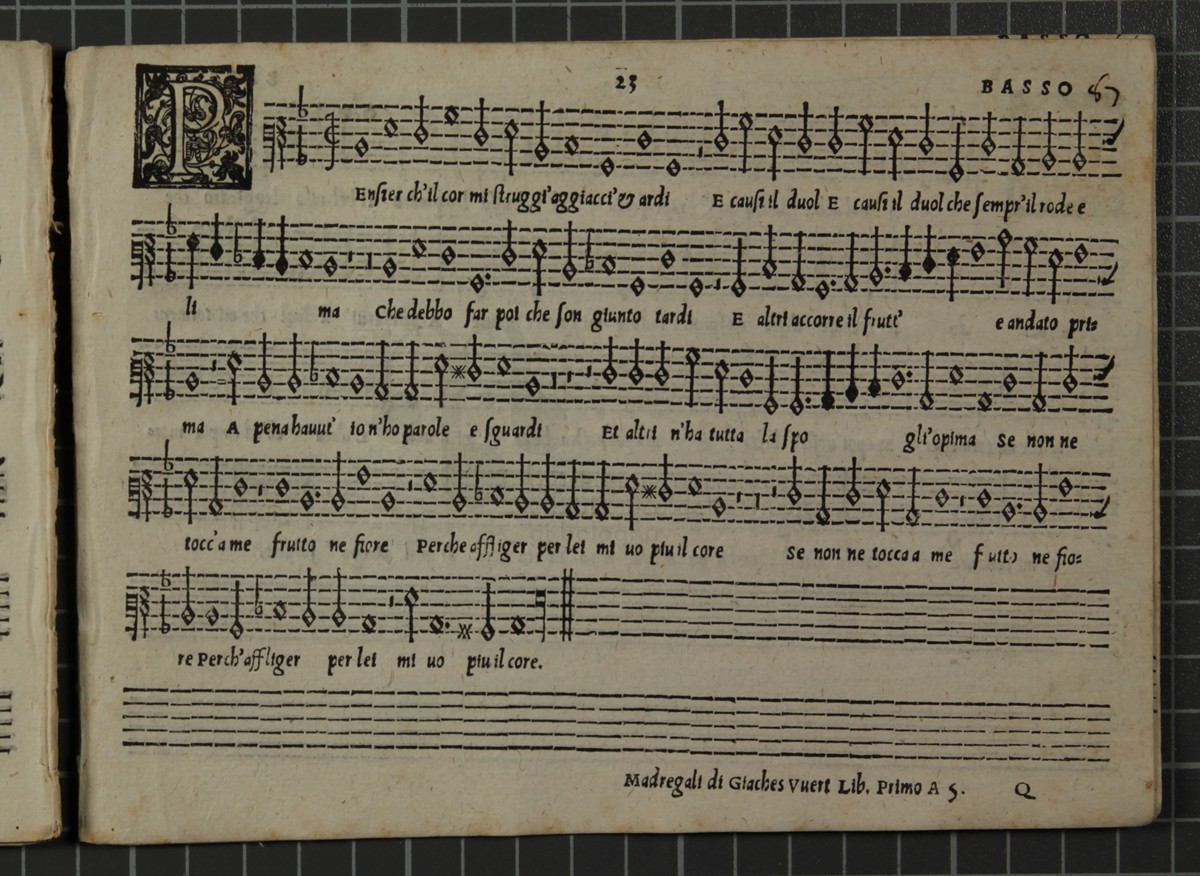 23 BASSO 67
PEnsier ch'il cor mi struggi'aggiacci'& ardi E causi il duol E causi il duol che sempr'il rode e
li ma Che debbo far poi che son giunto tardi E altri accorre il frutt' e andato pri=
ma A pena hauut' io n'ho parole e sguardi Et altri n'ha tutta la spo gli'opima Se non ne
tocc'a me frutto ne fiore Perche affliger per lei mi uo piu il core Se non ne tocca a me f utto ne fio=
re Perch'affliger per lei mi uo piu il core.
Madregali di Giaches Vuert Lib. Primo A 5. Q